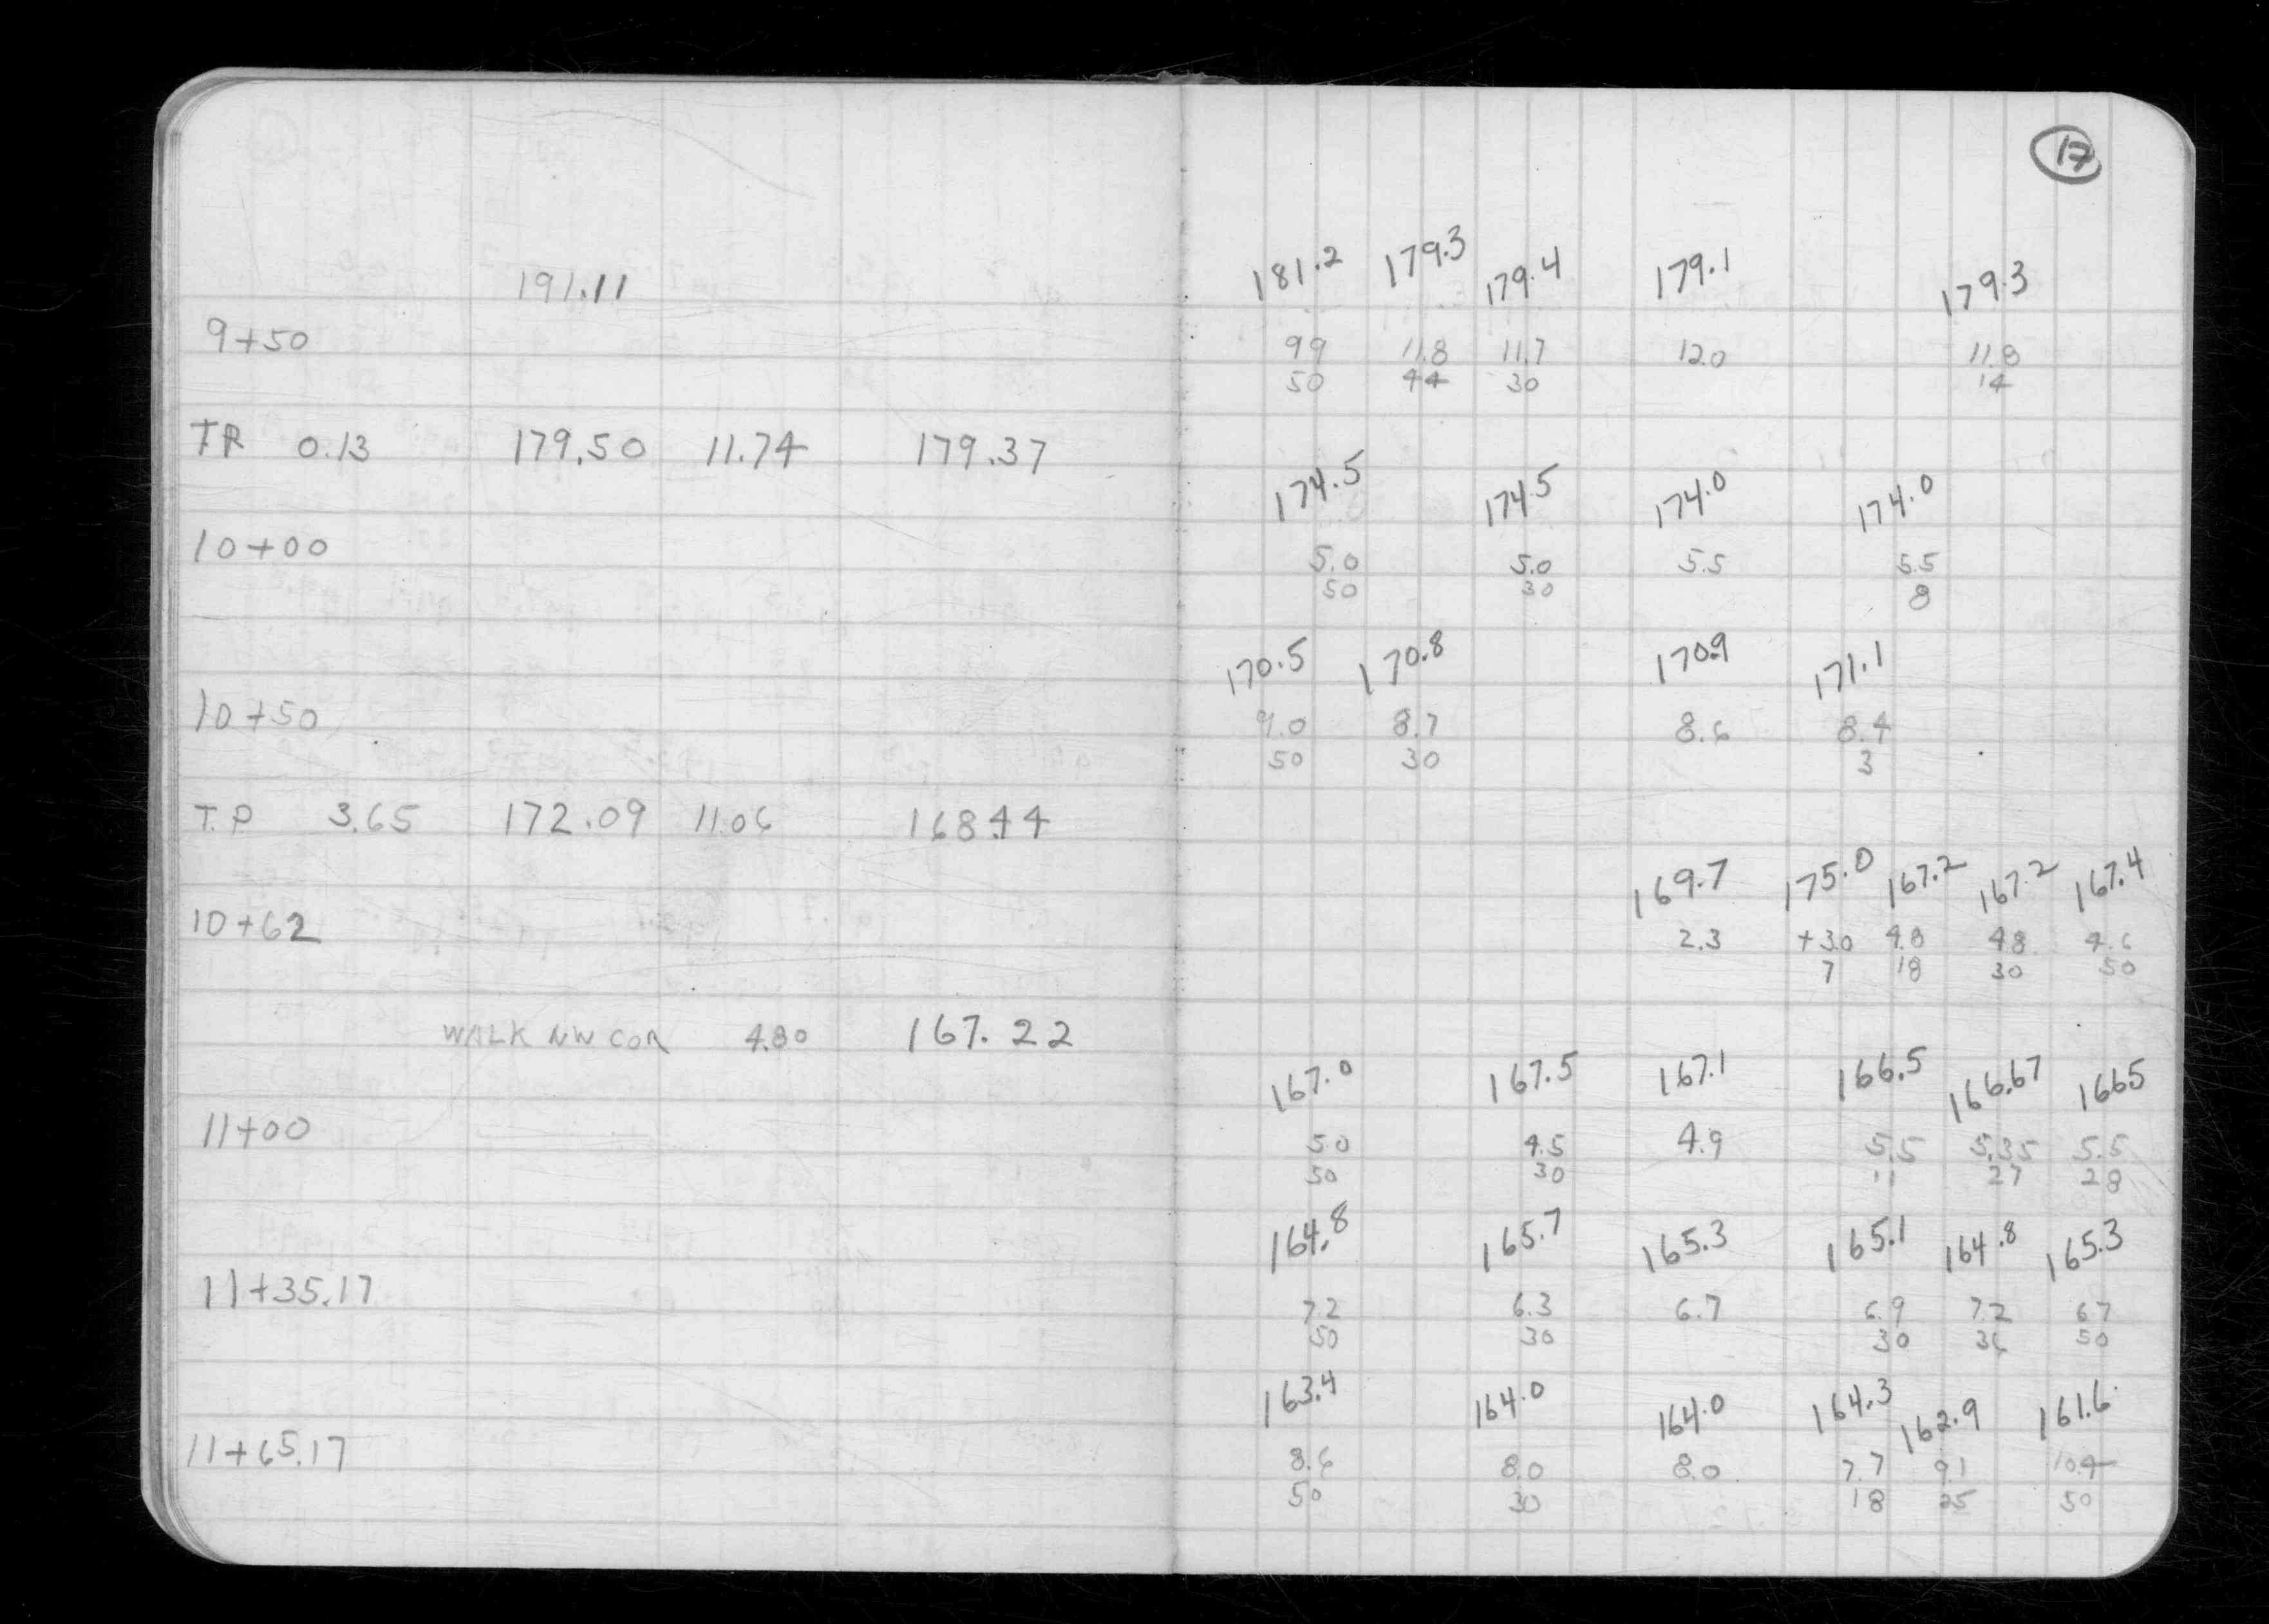 17
191.11 181.2 179.3 179.4 179.1 179.3
9+50 9.9 11.8 11.7 12.0 11.8
50 44 30 14
T.P. 0.13 179.50 11.74 179.37
174.5 174.5 174.0 174.0
10+00 5.0 5.0 5.5 5.5
50 30 8
170.5 170.8 170.9 171.1
10+50 9.0 8.7 8.6 8.4
50 30 3
T.P 3.65 172.09 11.06 168.44
169.7 175.0 167.2 167.2 167.4
10+62 2.3 +3.0 4.8 4.8 4.6
7 18 30 50
WALK NW COR 4.80 167.22
167.0 167.5 167.1 166.5 166.67 166.5
11+00 5.0 4.5 4.9 5.5 5.35 5.5
50 30 11 27 28
164.8 165.7 165.3 165.1 164.8 165.3
11+35.17 7.2 6.3 6.7 6.9 7.2 6.7
50 30 30 36 50
163.4 164.0 164.0 164.3 162.9 161.6
11+65.17 8.6 8.0 8.0 7.7 9.1 10.4
50 30 18 25 50